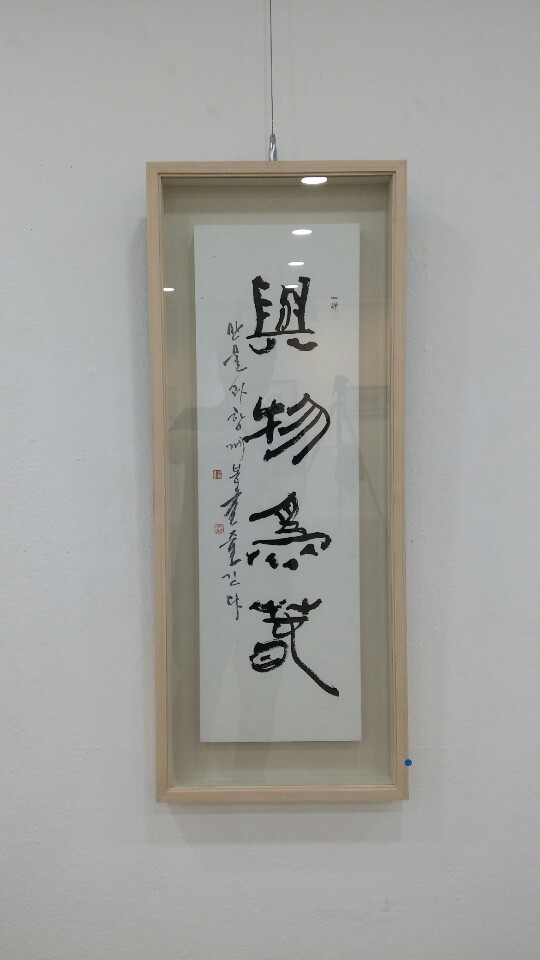 與物爲春
만물과 함께 봄을 즐긴다